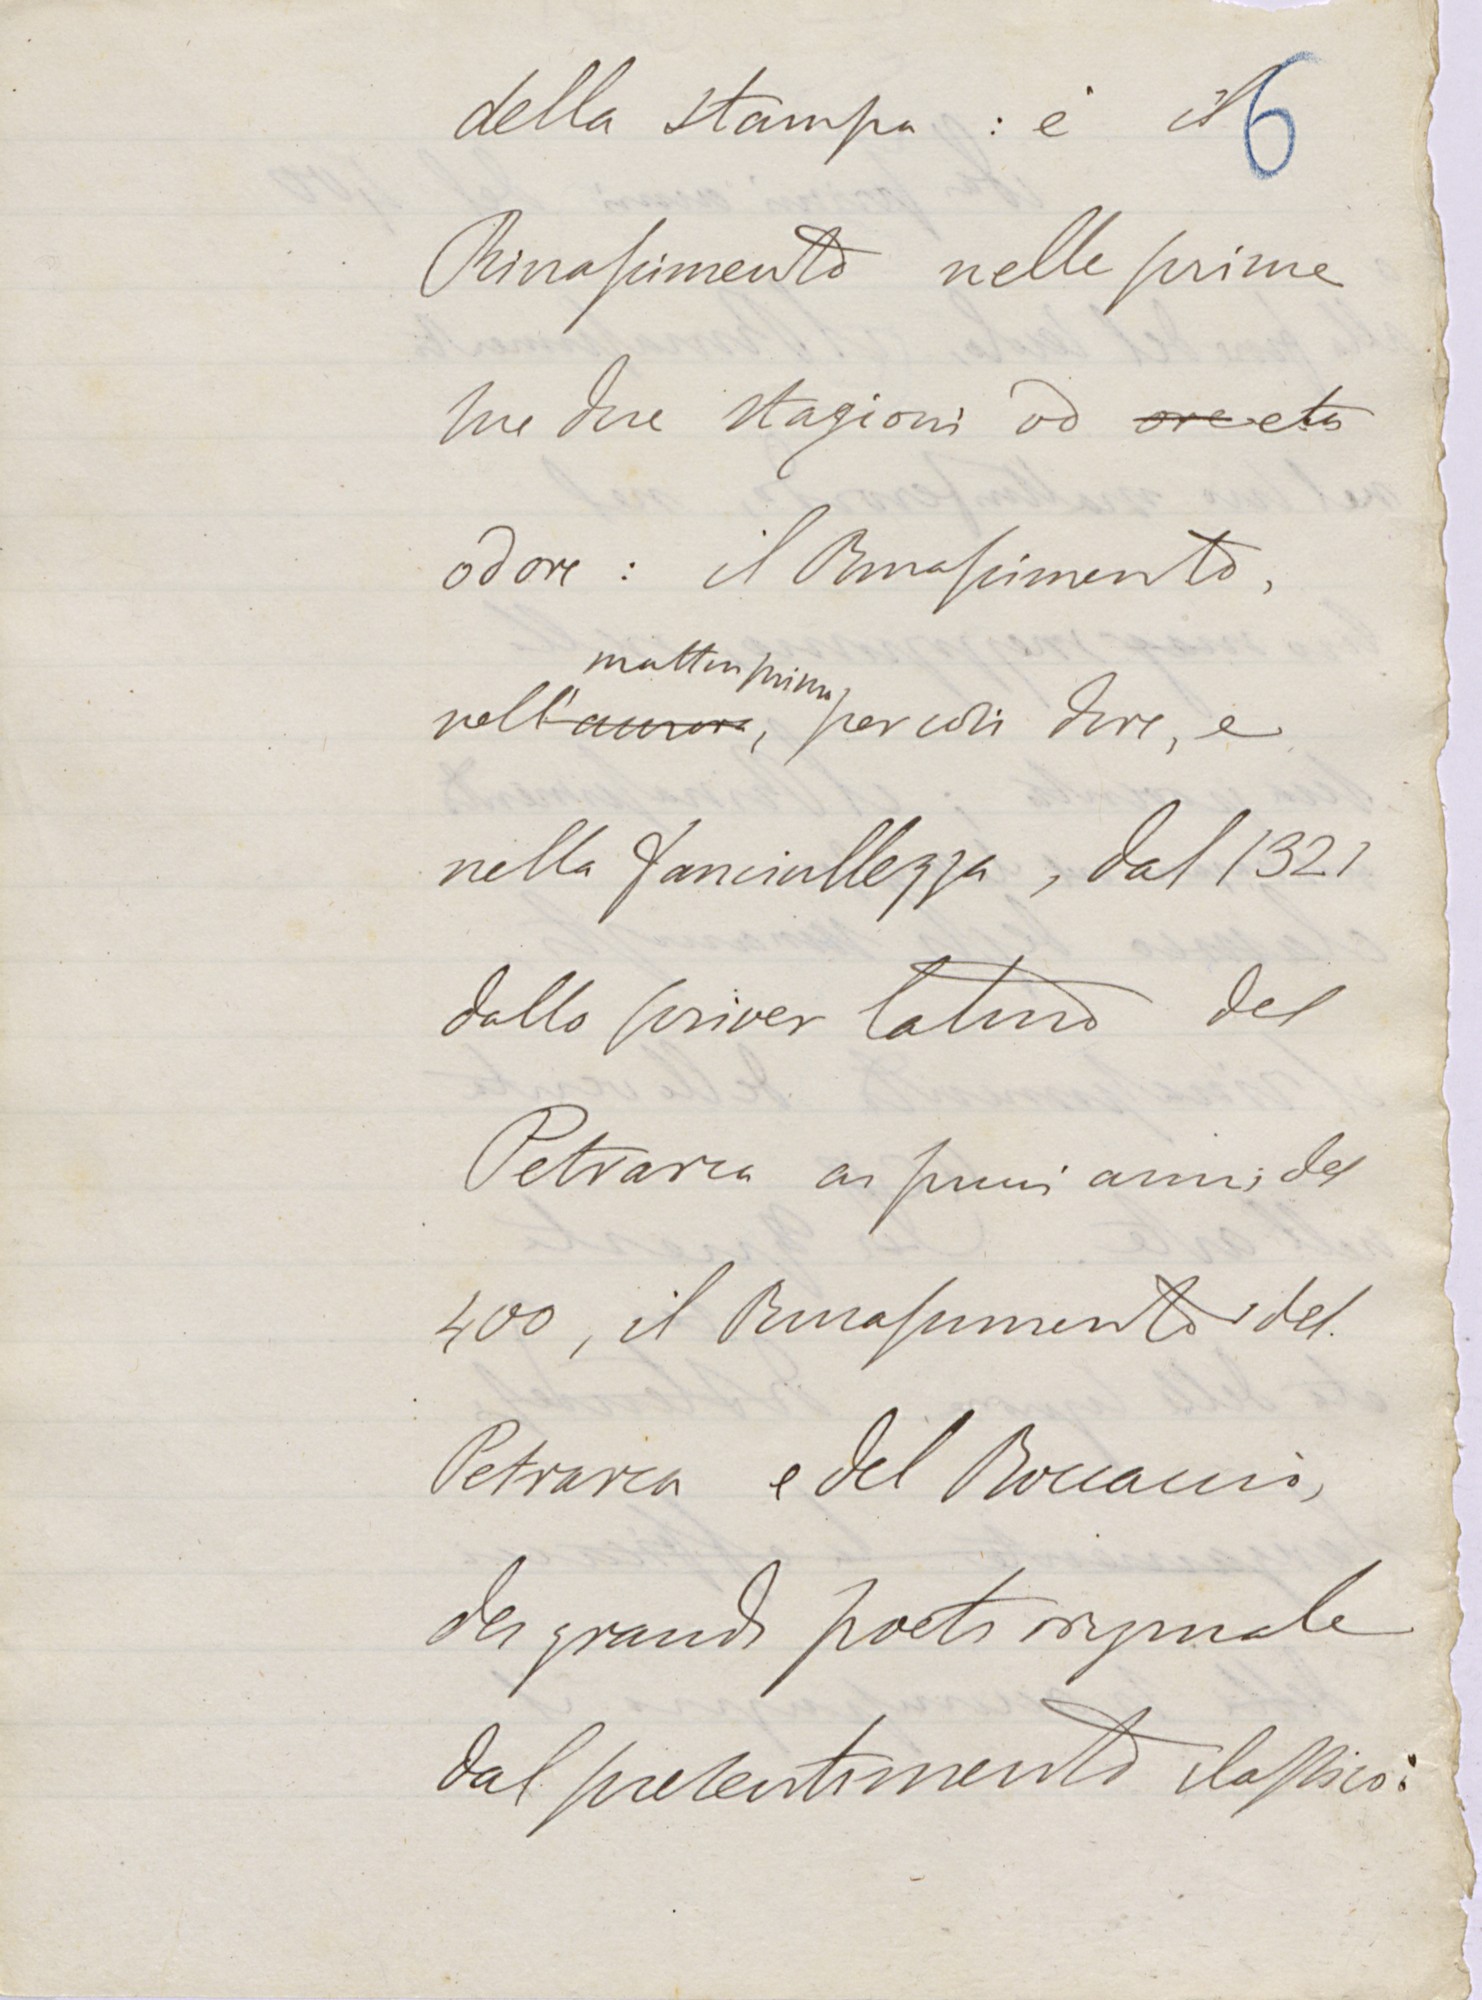 della stampa : è il 6
Rinascimento nelle prime
sue due stagioni od ore età
od ore : il Rinascimento,
mattin prima
nell'aurora, per così dire, e
nella fanciullezza, dal 1321
dallo scriver latino del
Petrarca ai primi anni del
400, il Rinascimento del
Petrarca e del Boccaccio,
dei grandi poeti originale
dal presentimento classico: